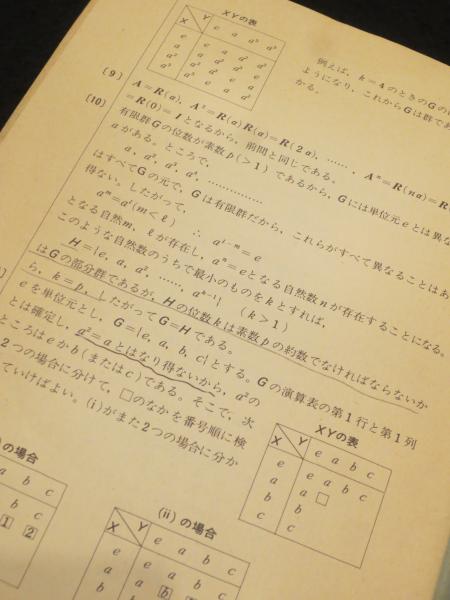 XYの表
X Y e a a² a³
e e a a² a³
a a a² a³ e
a² a² a³ e a
a³ a³ e a a²
例えば，k＝4のときのGの
ようになり，これからGは群であ
かる。
(9) A＝R(α)，A²＝R(α)R(α)＝R(2α)，……，Aⁿ＝R(nα)＝R
＝R(0)＝Iとなるから，前問と同じである。
(10) 有限群Gの位数が素数p(＞1)であるから，Gには単位元eとは異な
aがある。ところで，
a，a²，a³，a⁴，……………
はすべてGの元で，Gは有限群だから，これらがすべて異なることはあ
得ない。したがって，
aᵐ＝aˡ(m＜ℓ) ∴ aˡ⁻ᵐ＝e
となる自然m，ℓが存在し，aⁿ＝eとなる自然数nが存在することになる。
このような自然数のうちで最小のものをkとすれば，
H＝{e，a，a²，……，aᵏ⁻¹} (k＞1)
はGの部分群であるが，Hの位数kは素数pの約数でなければならないか
ら，k＝p，したがってG＝Hである。
eを単位元とし，G＝{e，a，b，c}とする。Gの演算表の第1行と第1列
とは確定し，a²＝aとはなり得ないから，a²の
ところはeかb(またはc)である。そこで，次
2つの場合に分けて，□のなかを番号順に検
ていけばよい。(i)がまた2つの場合に分か
XYの表
X Y e a b c
e e a b c
a a □
b b
c c
の場合
a b c
a b c
1 2
(ii)の場合
X Y e a b c
e e a b c
a a b